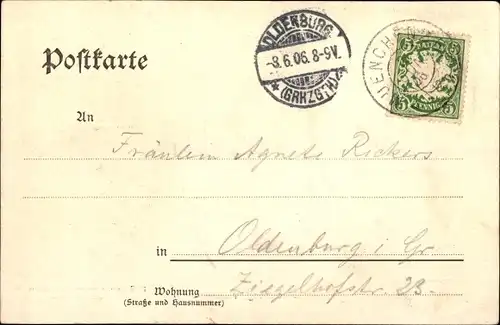 Postkarte
OLDENBURG
-8.6.06.8-9V.
* (GRHZGT.) *
MUENCHEN
BAYERN
5 5
5 PFENNIG 5
An
Fräulein Agnete Rickers
in Oldenburg i Gr
Wohnung Ziegelhofstr. 23.
(Straße und Hausnummer)